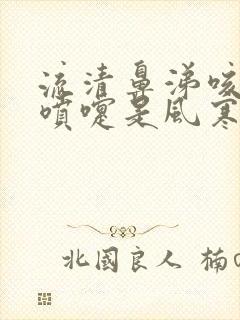 流清鼻涕咳
噴嚏是風寒
北國良人 楠